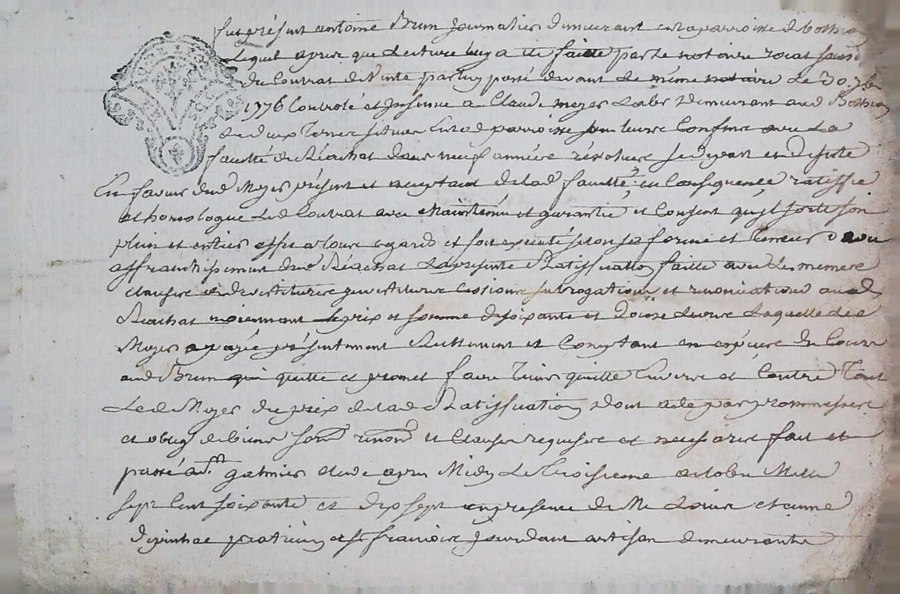 fut présent antoine Brun Journalier demeurant en la parroisse de
Lequel apres que Lecture luy a ete faitte par le notaire roial
du Contrat de Vente par luy passé devant le même notaire Le 30
1776 Controlé et Insinué a Claude moyer demeurant aud
de deux Terres scituées en lad parroisse sous leurs Confins avec La
faculté de Réachat dans neuf années révolues
En faveur dud Moyer présent et acceptant de lad faculté, en Consequence ratiffie
et homologue Led Contrat avec Maintenüe et garantie, et Consent quil sorte son
plein et entier effet a tous egards et soit executé selon sa forme et teneur avec
affranchissement dud Réachat La présente Ratiffication faitte avec Les mêmes
clauses de investiture Cessions subrogations et renonciation aud
Réachat moyennant Le prix et somme de soixante et douze Livres Laquelle Led
Moyer a payée présentement Réellement et Comptant en espèces du Cours
aud Brun qui quitte et promet faire Tenir quitte Envers et Contre Tous
Led Moyer du prix de lad Ratiffication dont acte par promesses
et oblig de biens renon et Clauses requises et necessaires fait et
passé a galmier etude apres Midy Le Troisieme octobre Mille
sept Cent soixante et dix sept en presence de Me etienne
praticien et sr francois Jourdant artisan demeurants